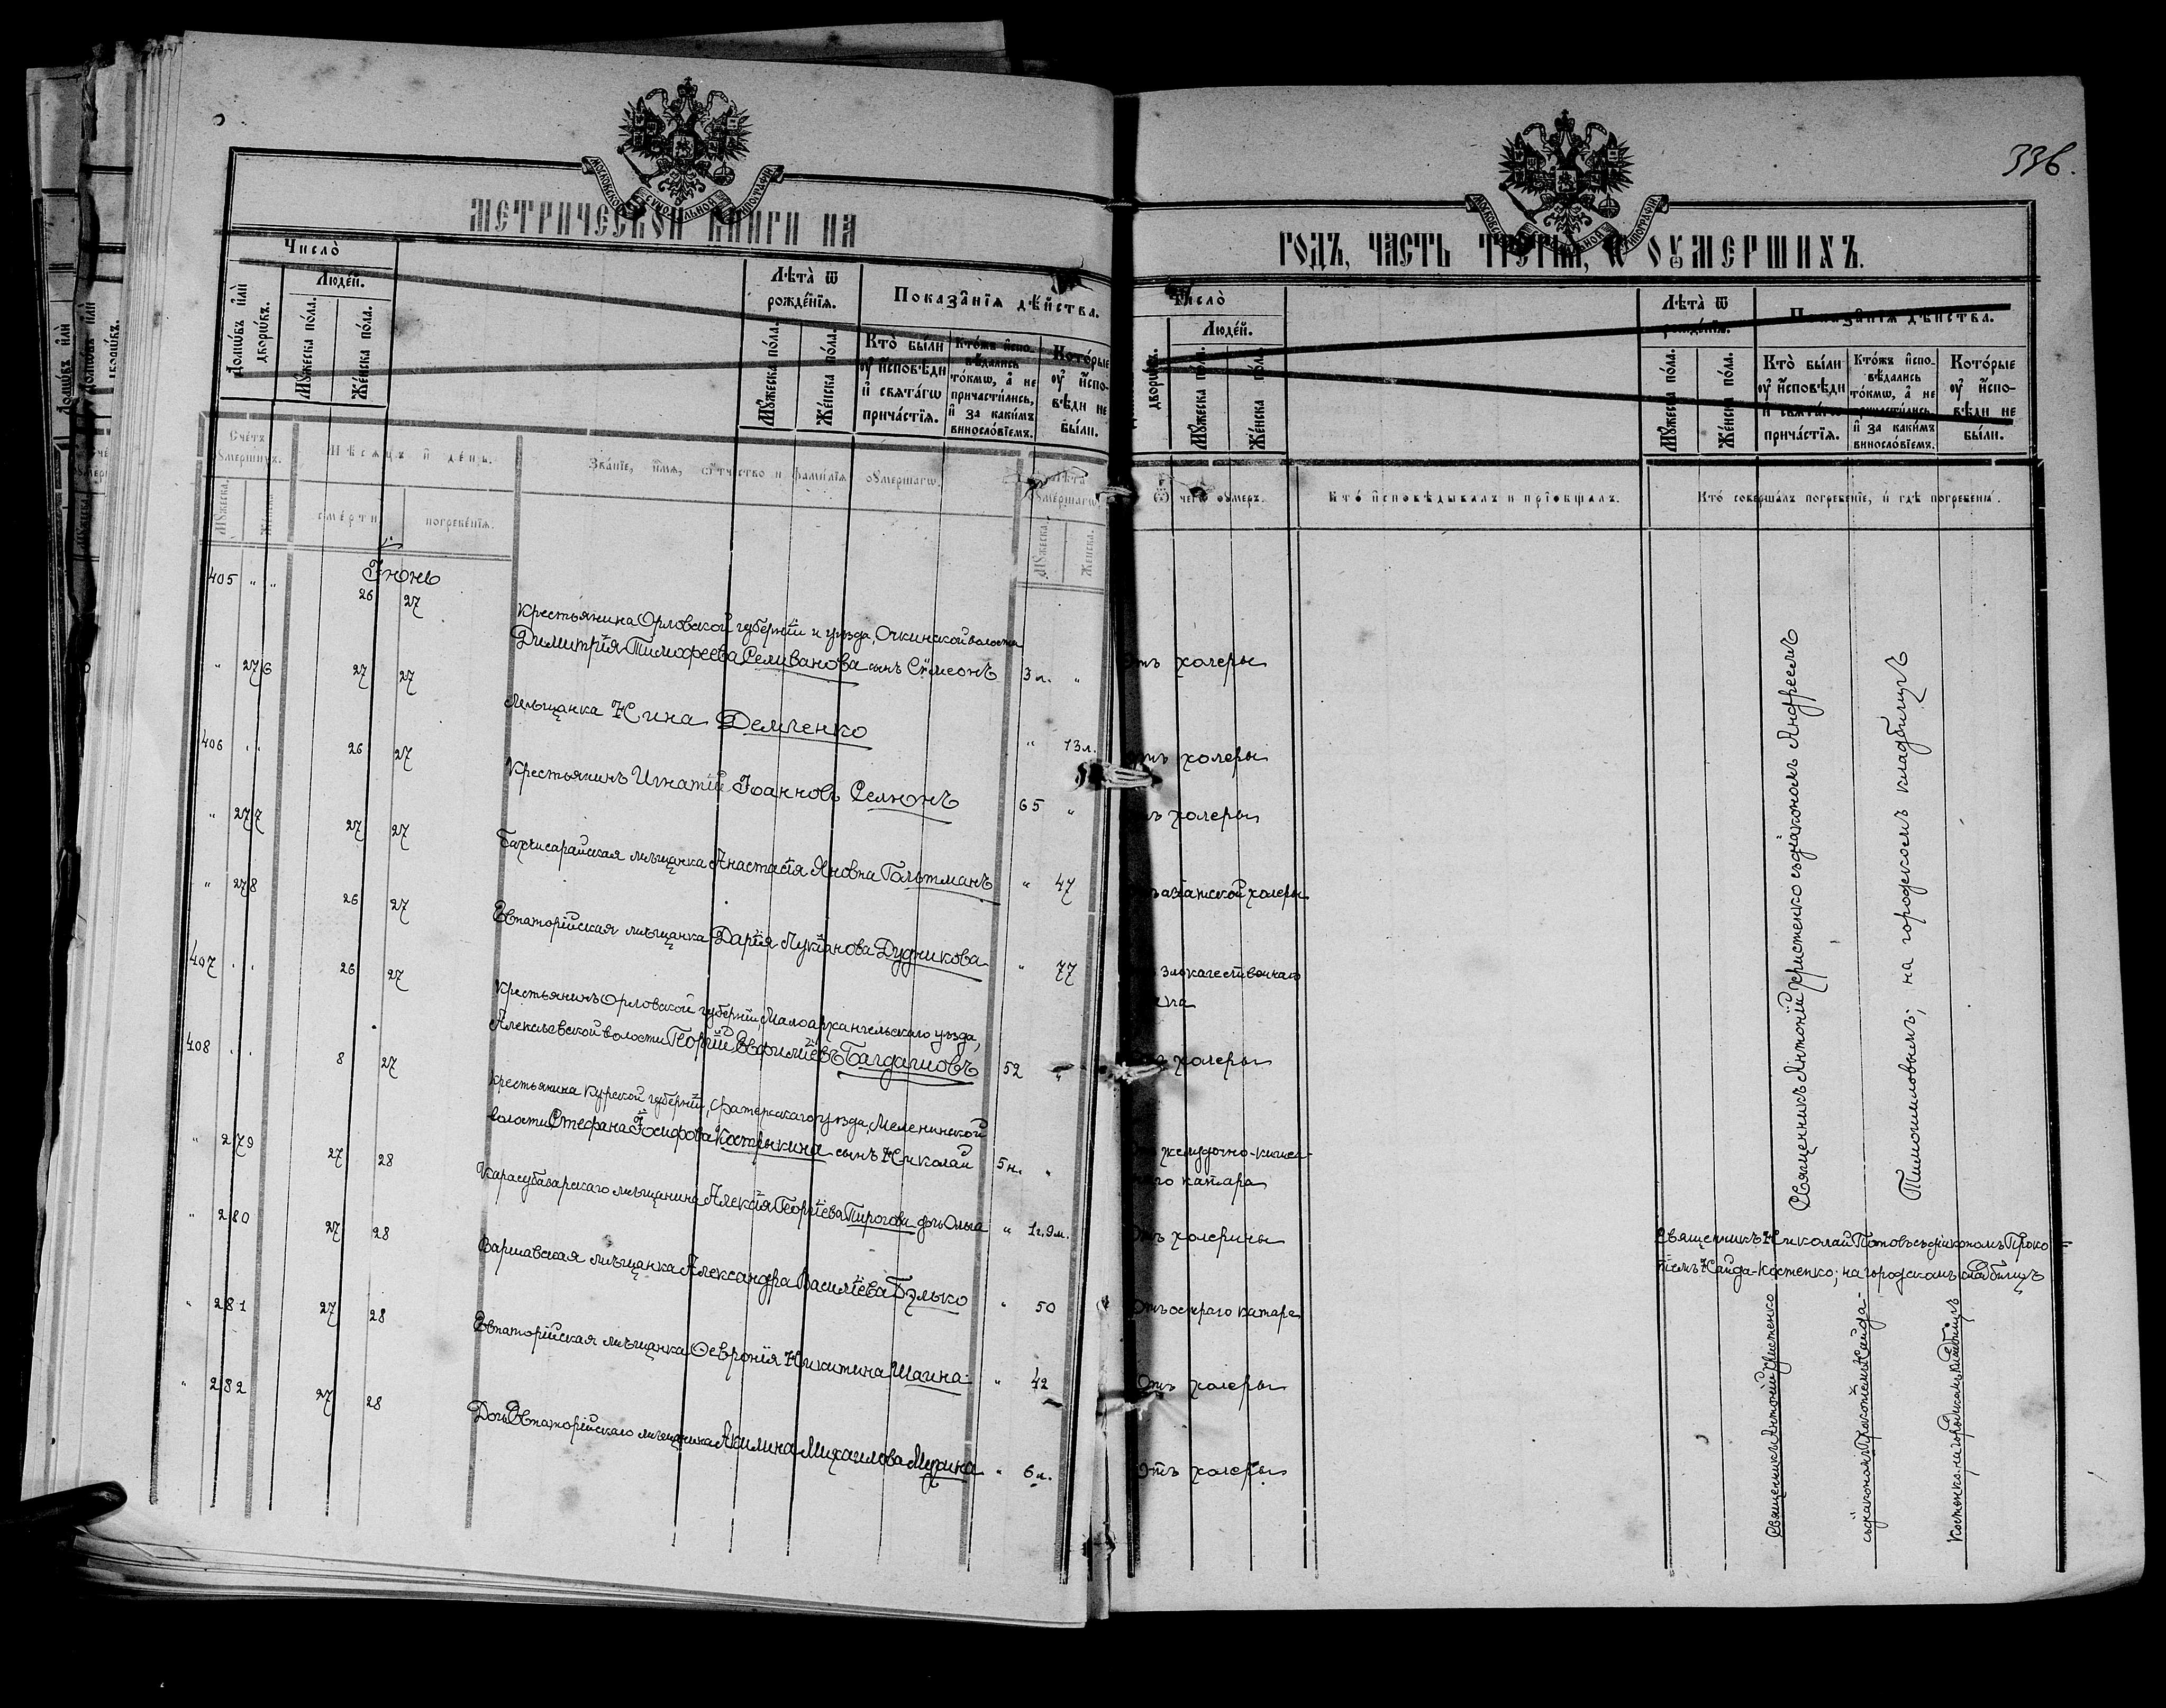 336.
МЕТРИЧЕСКОЙ КНИГИ НА
ГОДЪ, ЧАСТЬ ТРЕТЇѦ, Ѽ ОУМЕРШИХЪ.
МОСКОВСКОЙ СѴНОДАЛЬНОЙ ТИПОГРАФІИ
Число̀
Домѡвъ и҆лѝ дворѡ́въ.
Людей.
Мꙋжеска пола.
Женска пола.
Лѣта̀ ѿ рожденїѧ.
Мꙋжеска пола.
Женска пола.
Показанїѧ дѣйства.
Кто̀ были оу҆ и҆сповѣди и҆ свѧтагѡ причастїѧ.
Ктожъ и҆сповѣдались токмѡ, а҆ не причастились, и҆ за какимъ винословїемъ.
Которые оу҆ и҆сповѣди не были.
Счетъ оумершихъ.
Мꙋжеска.
Женска.
Мѣсѧцъ и день.
смерти
погребенїѧ.
Званїе, имѧ, ѻтчество и фамилїѧ оумершагѡ.
Лѣта оумершагѡ.
Мꙋжеска.
Женска.
Ѿ чегѡ оумеръ.
Кто исповѣдывалъ и прїобщалъ.
Кто совершалъ погребенїе, и гдѣ погребены.
Іюнь
405 " " 26 27 Крестьянина Орловской губерніи и уѣзда, Очкинской волости
Димитрія Тимофеева Селиванова сынъ Сѷмеонъ 3 л. " Отъ холеры
" 276 27 27 Мѣщанка Нина Демченко " 13 л. Отъ холеры
406 " " 26 27 Крестьянинъ Игнатій Іоанновъ Селюнъ 65 " Отъ холеры
" 277 27 27 Бахчисарайская мѣщанка Анастасія Яновна Гольтманъ " 47 азіатской холеры
" 278 26 27 Евпаторійская мѣщанка Дарія Лукіанова Дудникова " 77 злокачественнаго
407 " " 26 27 Крестьянинъ Орловской губерніи, Малоархангельскаго уѣзда,
Алексѣевской волости Георгій Евфиміевъ Багдашовъ 52 " холеры
408 " " 8 27 Крестьянина Курской губерніи, Фатежскаго уѣзда, Меленинской
волости Стефана Іосифова Костыкина сынъ Николай 5 н. " желудочно-кишеч-
наго катара
" 279 27 28 Карасубазарскаго мѣщанина Алексія Георгіева Пирогова дочь Ольга " 1 г. 9 м. Отъ холерины
" 280 27 28 Варшавская мѣщанка Александра Василіева Булько " 50 Отъ остраго катара
" 281 27 28 Евпаторійская мѣщанка Ѳевронія Никитина Шаина " 42 Отъ холеры
" 282 27 28 Дочь Евпаторійскаго мѣщанина Акилина Михаилова Мухина " 6 л. Отъ холеры
Священникъ Антоній Христенко съ діакономъ Андреемъ
Тимошиловымъ; на городскомъ кладбищѣ
Священникъ Николай Поповъ съ діакономъ Проко-
піемъ Кайда-Костенко; на городскомъ кладбищѣ
Священникъ Антоній Христенко
съ діакономъ Прокопіемъ Кайда-
Костенко, на городскомъ кладбищѣ